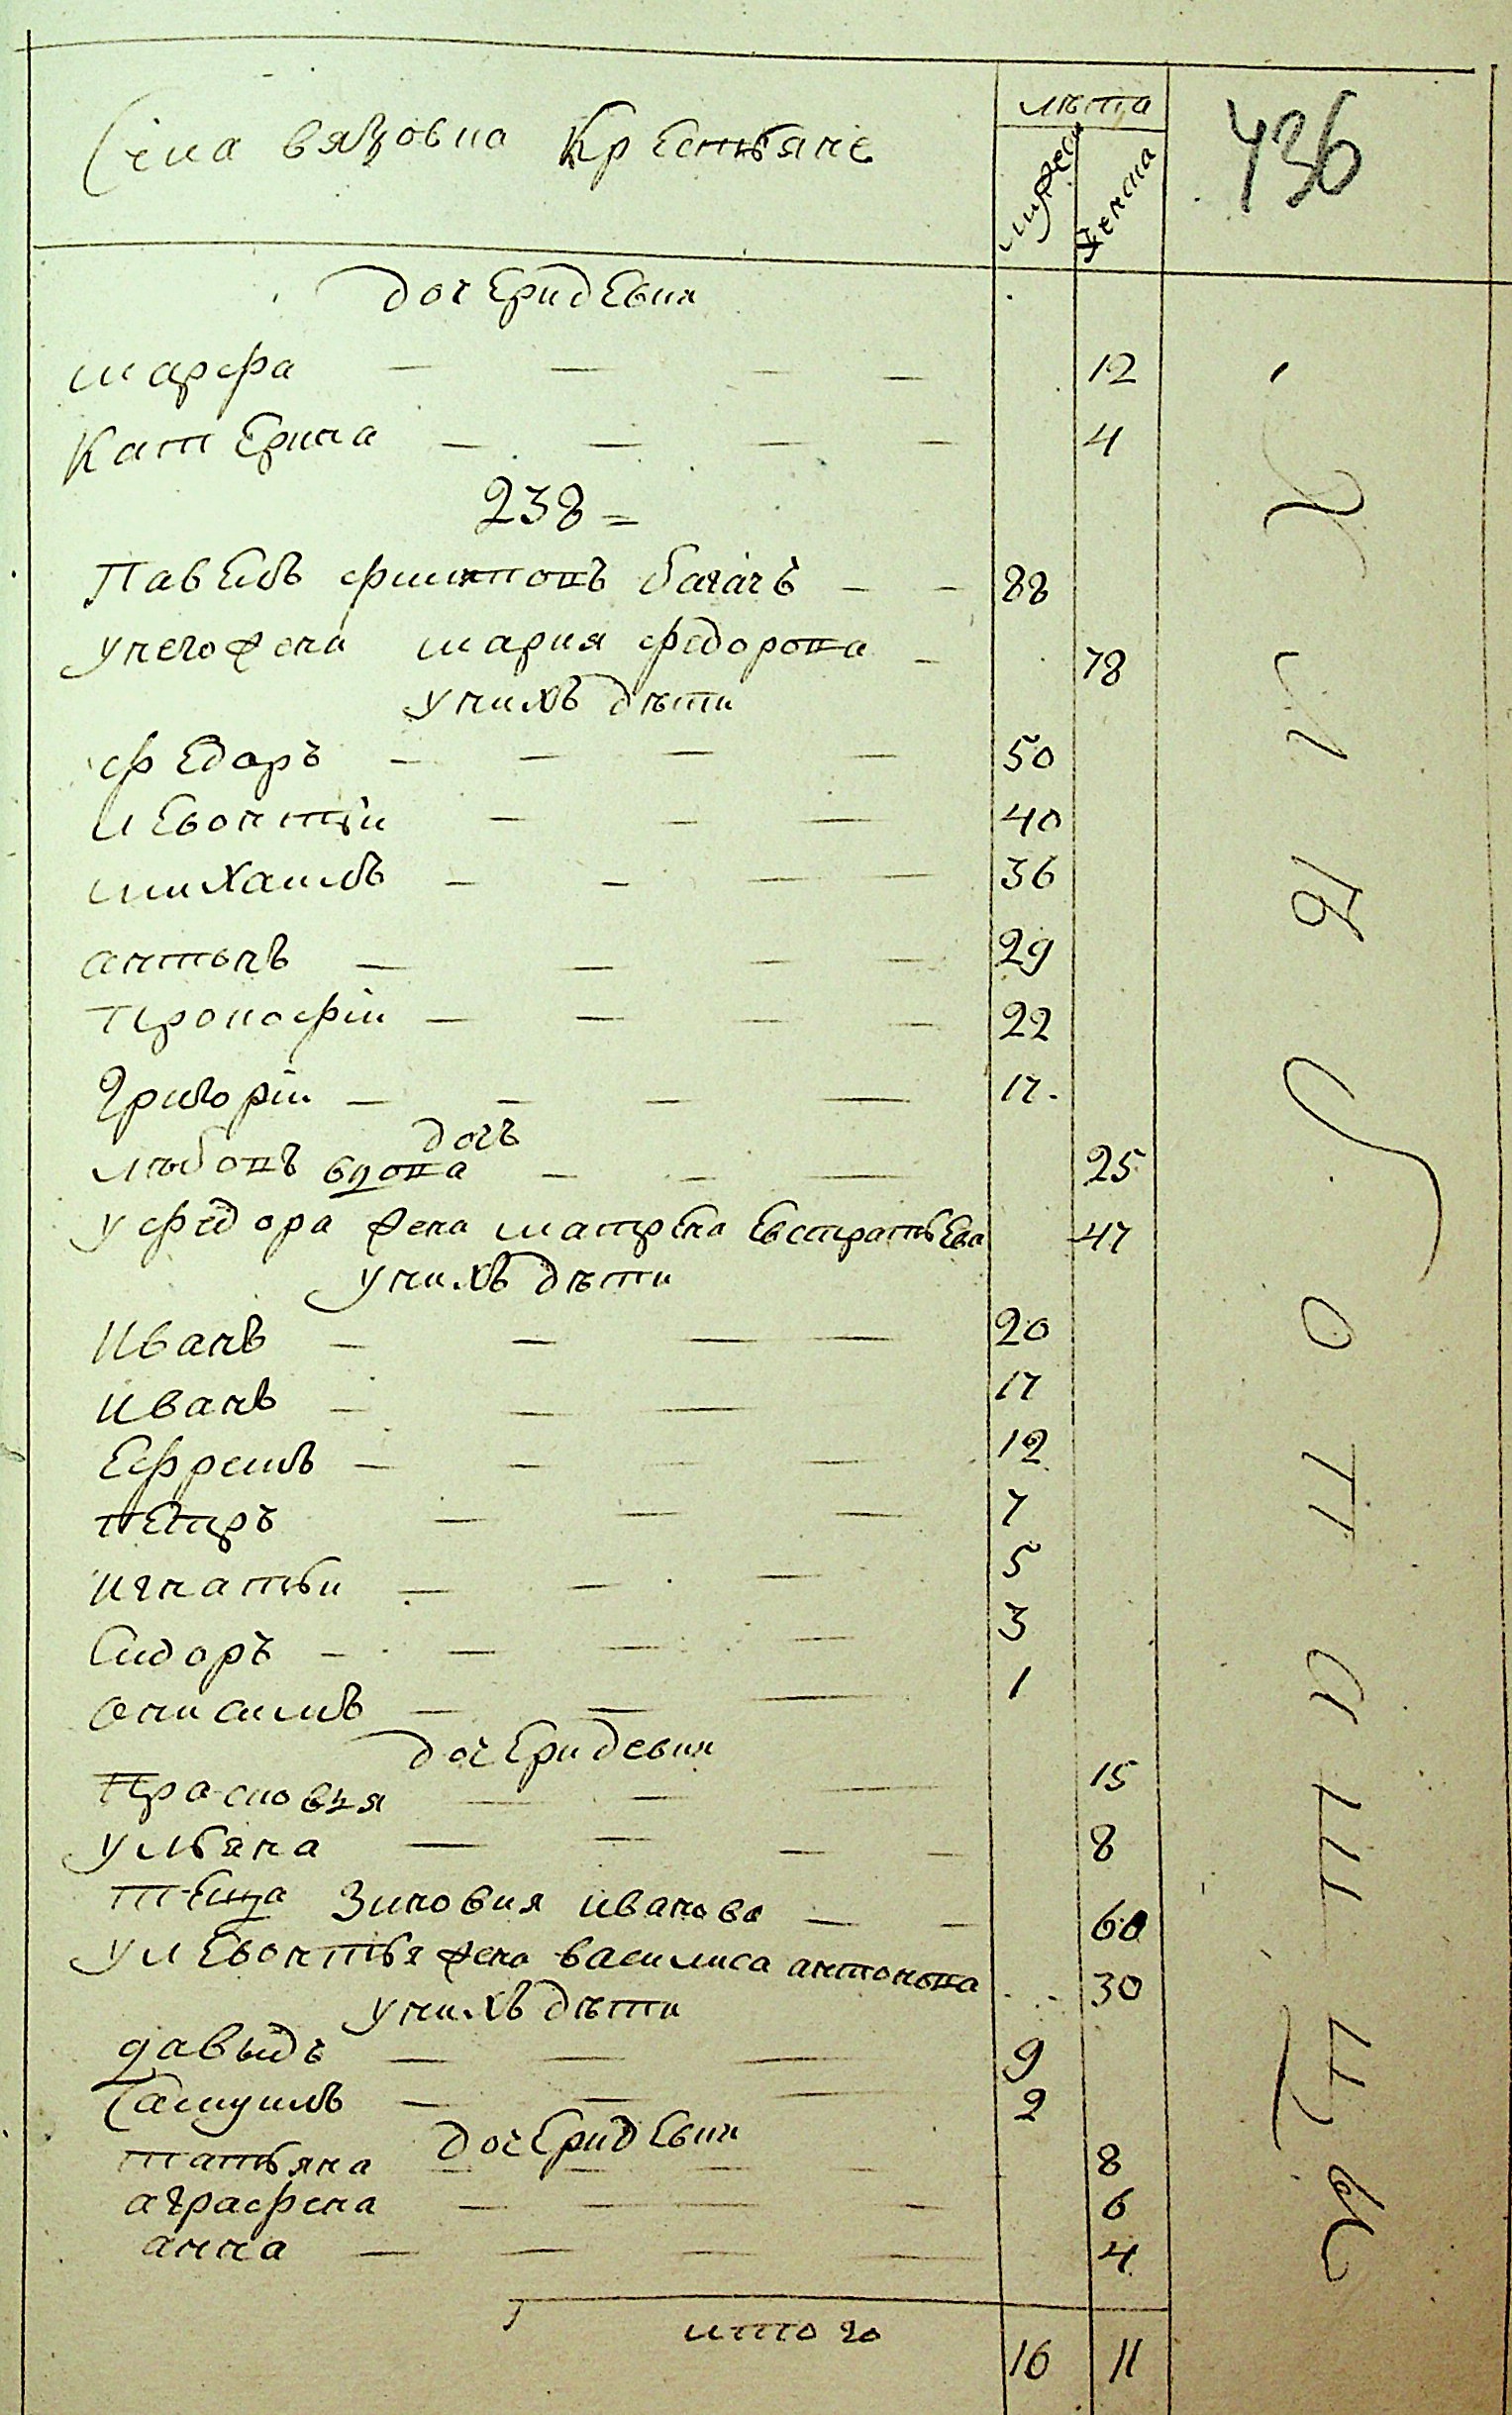 села вязовка крестьяне
лѣта
мужеска
женска
436
дочери девки
марфа 12
катерина 4
238 =
павелъ филиповъ багачъ 88
унего жена мария федорова 78
унихъ дѣти
федаръ 50
левонтьи 40
михаилъ 36
антонъ 29
прокофiи 22
григорiи 17
дочь
любовь вдова 25
уфедора жена матрена евстратьева 47
унихъ дѣти
иванъ 20
иванъ 17
ефремъ 12
петръ 7
игнатьи 5
сидоръ 3
анисимъ 1
дочери девки
прасковья 15
ульяна 8
теща зиновия иванова 60
улевонтья жена василиса антонова 30
унихъ дѣти
давыдъ 9
самуилъ 2
дочери девки
татьяна 8
аграфена 6
анна 4
итого 16 11